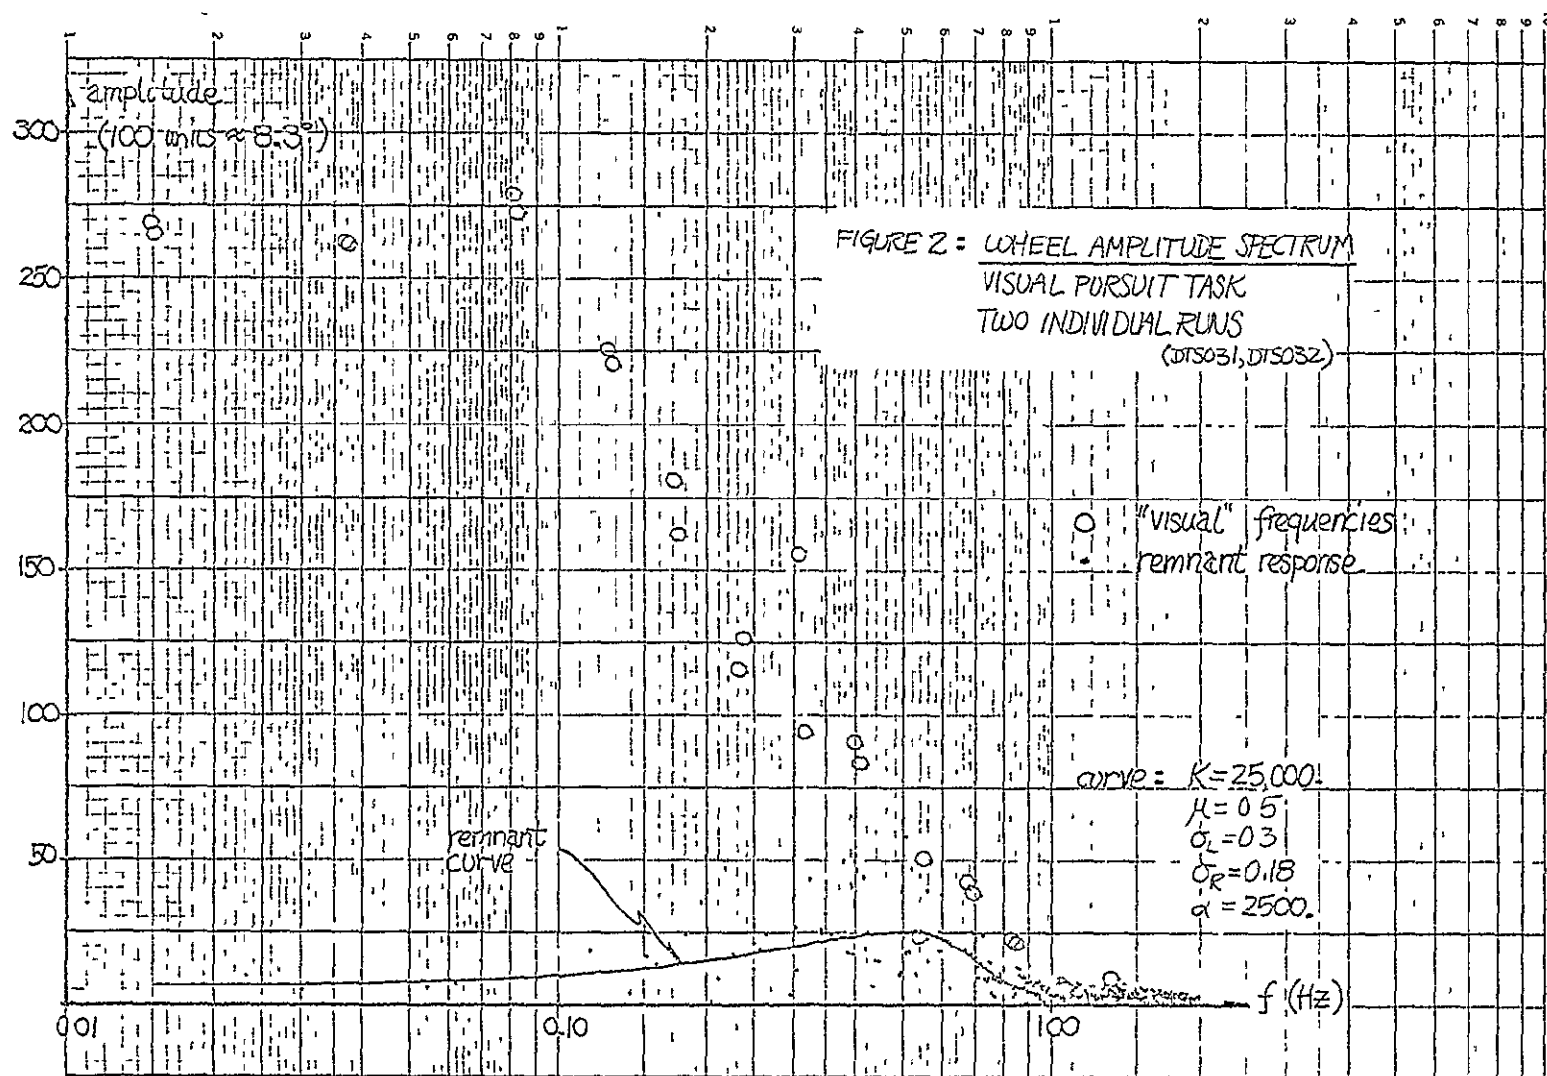 1 2 3 4 5 6 7 8 9 1 2 3 4 5 6 7 8 9 1 2 3 4 5 6 7 8 9
amplitude
(100 units ≈ 8.3°)
300
250
200
150
100
50
FIGURE 2: WHEEL AMPLITUDE SPECTRUM
VISUAL PURSUIT TASK
TWO INDIVIDUAL RUNS
(DTS031, DTS032)
"visual" frequencies
remnant response
curve: K=25,000.
μ=0.5
σL=0.3
σR=0.18
α=2500.
remnant
curve
f (Hz)
0.01 0.10 1.00